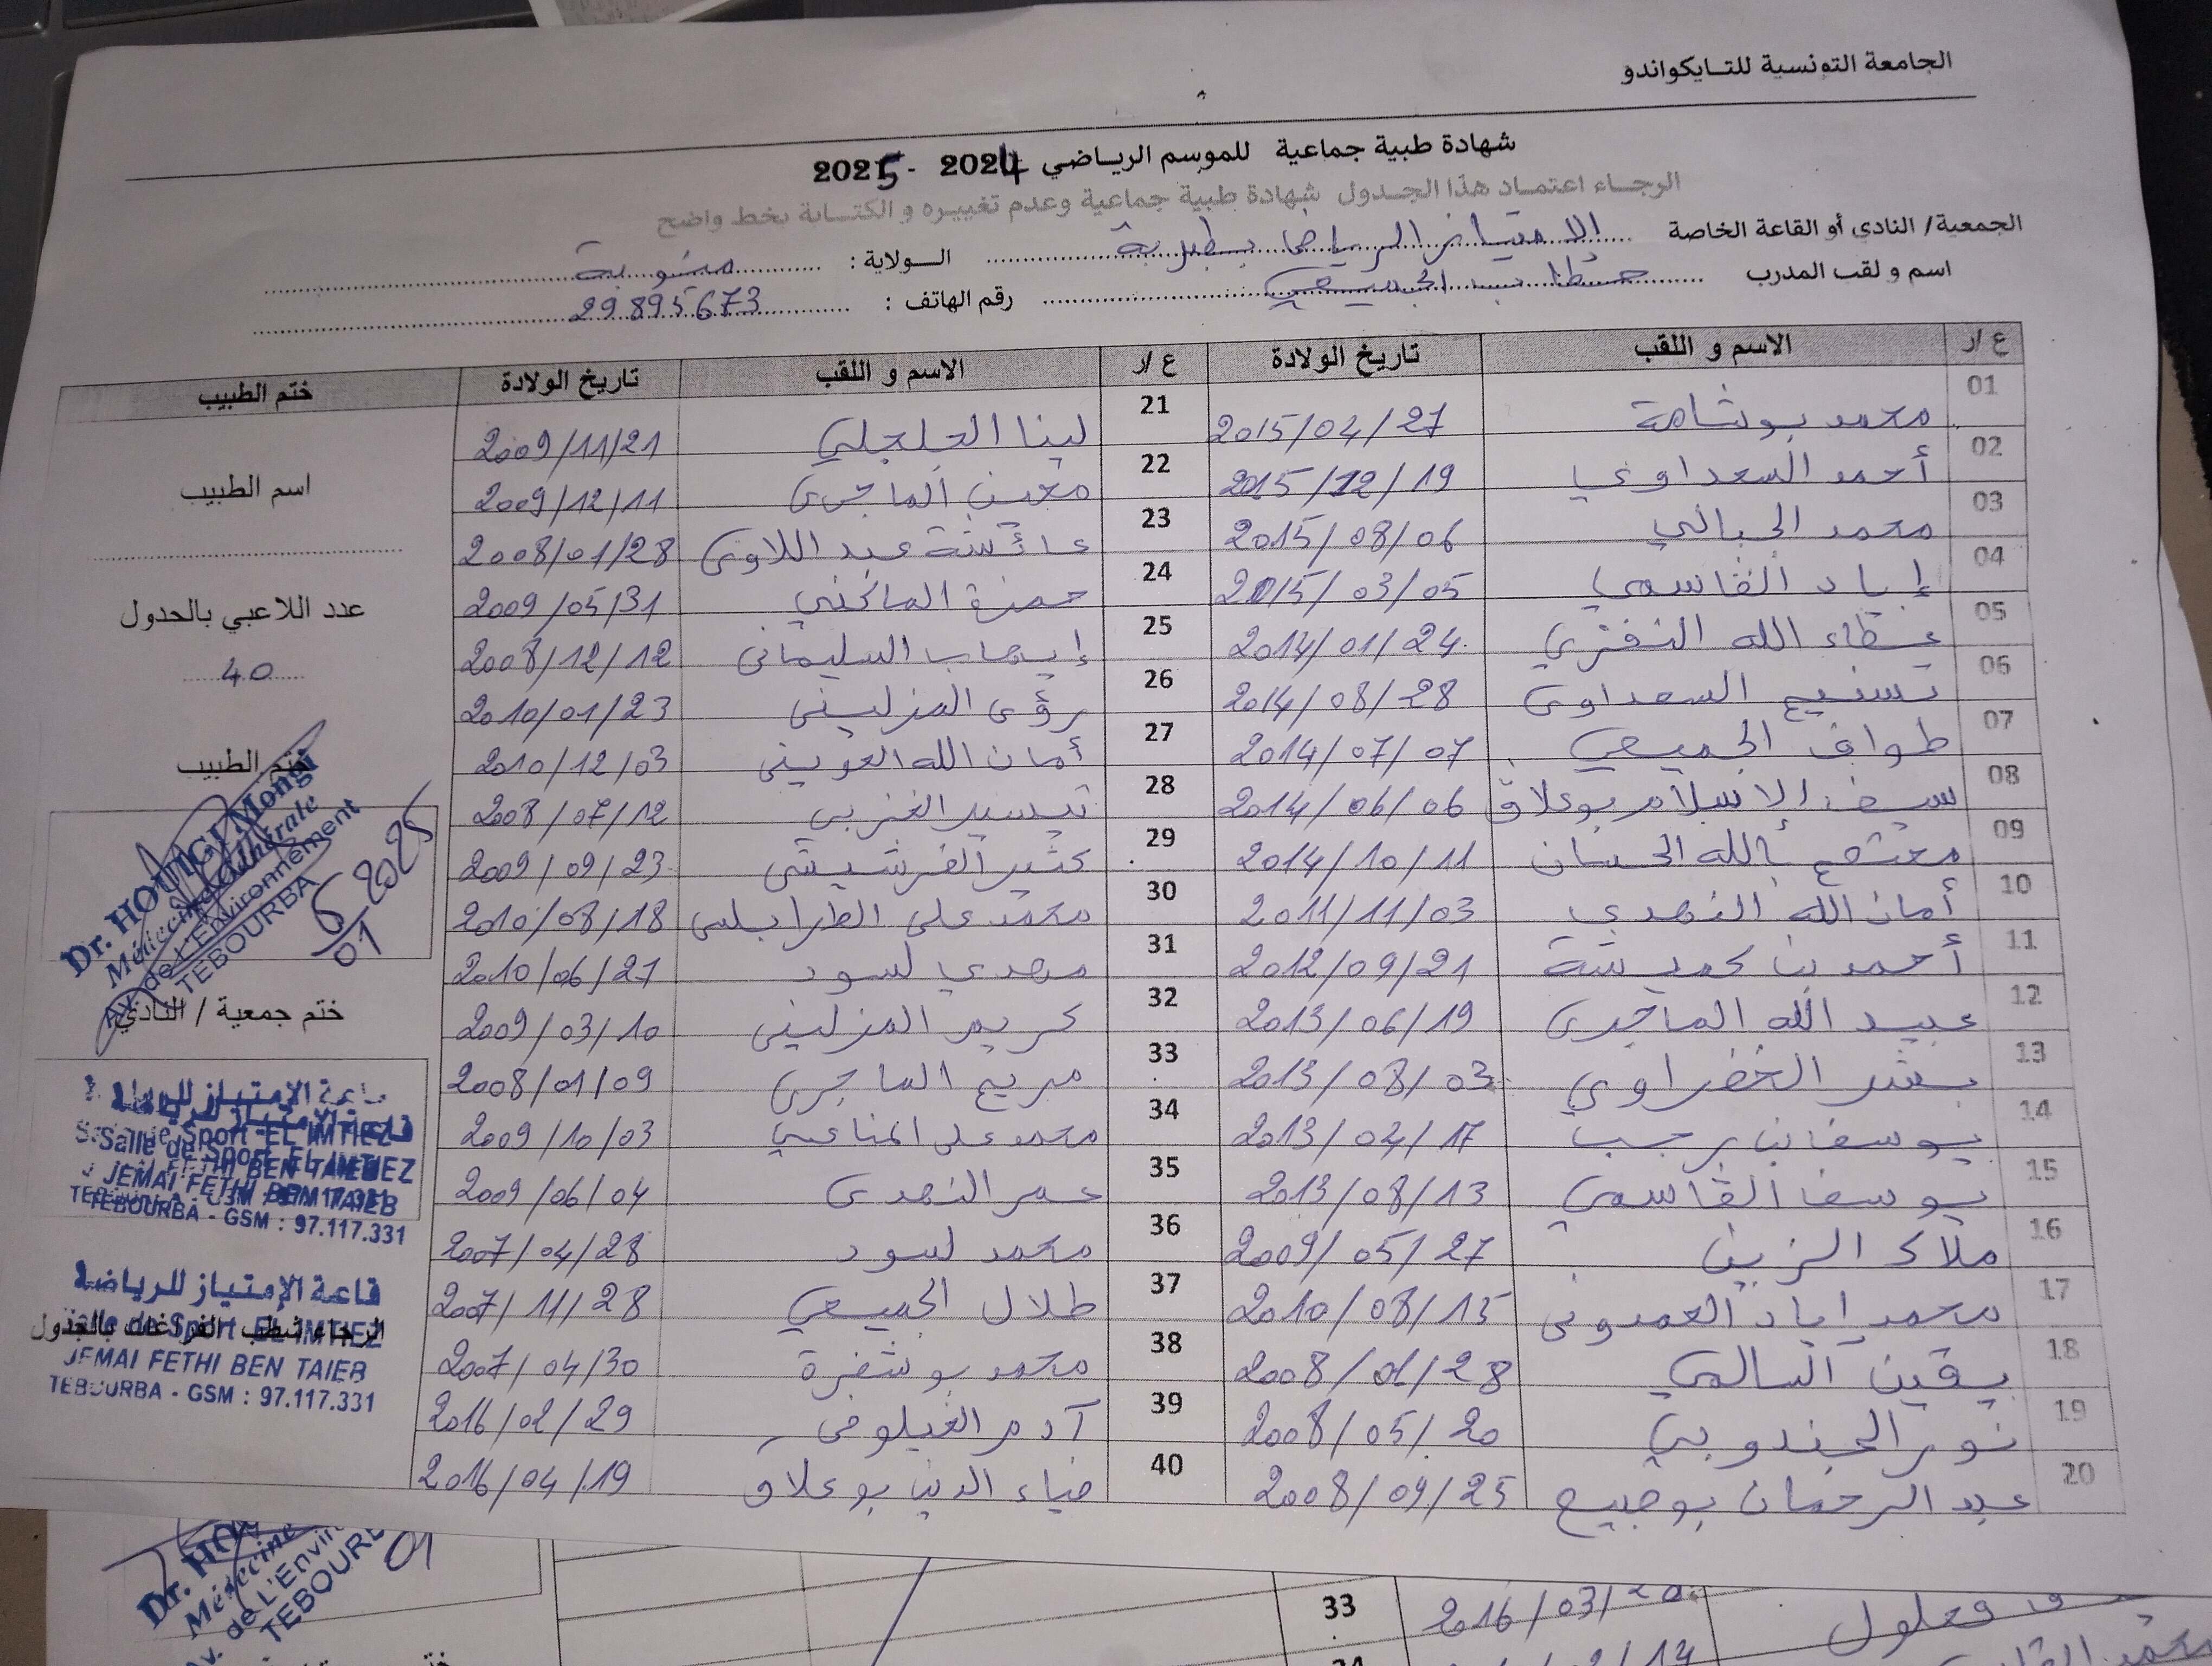 الجامعة التونسية للتايكواندو
شهادة طبية جماعية للموسم الرياضي 2024 - 2025
الرجاء اعتماد هذا الجدول شهادة طبية جماعية وعدم تغييره و الكتابة بخط واضح
الجمعية/ النادي أو القاعة الخاصة الامتياز الرياضي بطبربة الولاية : منوبة
اسم و لقب المدرب حطاب الجميعي رقم الهاتف : 29895673
ع/ر الاسم و اللقب تاريخ الولادة ع/ر الاسم و اللقب تاريخ الولادة ختم الطبيب
01 محمد بوشامة 2015/04/27 21 لينا الجلجلي 2009/11/21
02 أحمد السعداوي 2015/12/19 22 معين الماجري 2009/12/11
03 محمد الجبالي 2015/08/06 23 عائشة عبد اللاوي 2008/01/28
04 إياد القاسمي 2015/03/05 24 حمزة الماكني 2009/05/31
05 عطاء الله النفزي 2014/01/24 25 إيهاب السليماني 2008/12/12
06 تسنيم السعداوي 2014/08/28 26 رؤى المزليني 2010/01/23
07 طواف الجميعي 2014/07/07 27 أمان الله العويني 2010/12/03
08 سيف الاسلام بوعلاق 2014/06/06 28 تيسير الغزبي 2008/07/12
09 معتصم بالله الحسان 2014/10/11 29 كثير الفرشيشي 2009/09/23
10 أمان الله النهدي 2011/11/03 30 محمد علي الطرابلسي 2010/08/18
11 أحمد بن كميشة 2012/09/21 31 مهدي لسود 2010/06/27
12 عبيد الله الماجري 2013/06/19 32 كريم المزليني 2009/03/10
13 بشر الخضراوي 2013/08/03 33 مريم الماجري 2008/01/09
14 يوسف بن رجب 2013/04/17 34 محمد علي المناعي 2009/10/03
15 يوسف القاسمي 2013/08/13 35 عمر النهدي 2009/06/04
16 ملاك الزين 2009/05/27 36 محمد لسود 2007/04/28
17 محمد إياد العمدوني 2010/08/15 37 طلال الجميعي 2007/11/28
18 يقين السالمي 2008/01/28 38 محمد بوشفرة 2007/04/30
19 نور الجندوبي 2008/05/20 39 آدم الغيلوفي 2016/02/29
20 عبد الرحمان بوجبيع 2008/09/25 40 ضياء الدين بوعلاق 2016/04/19
اسم الطبيب
عدد اللاعبي بالحدول
40
ختم الطبيب
Dr. HOUIGI Mongi
Médecine Générale
Av. de L'Environnement
TEBOURBA
6 2025
01
ختم جمعية / النادي
قاعة الإمتياز للرياضة
Salle de Sport EL IMTIEZ
JEMAI FETHI BEN TAIEB
TEBOURBA - GSM : 97.117.331
قاعة الإمتياز للرياضة
الرجاء شطب الفراغات بالجدول
Salle de Sport EL IMTIEZ
JEMAI FETHI BEN TAIEB
TEBOURBA - GSM : 97.117.331
Médecine
Av. de L'Envir
01
33 2016/03/20